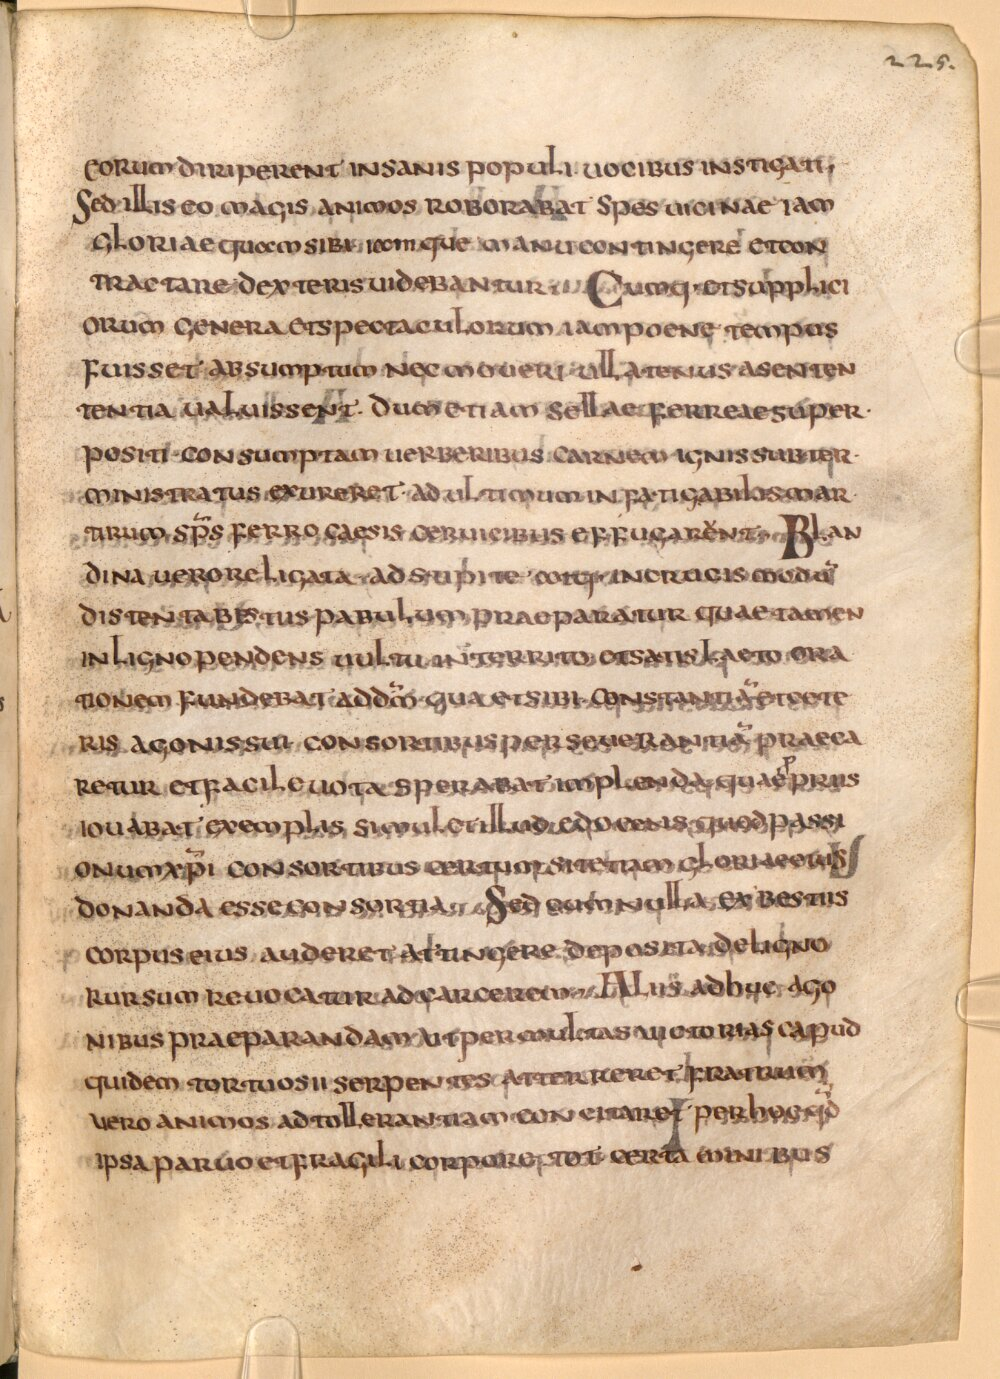 225.
eorum diriperent insanis populi uocibus instigati,
Sed illis eo magis animos roborabat spes uicinae iam
gloriae quam sibi iamque manu contingere et con
tractare dexteris uidebantur Cumq· et supplici
orum genera et spectaculorum iam poene tempus
fuisset absumptum nec moueri ullatenus a senten
tentia ualuissent. dum etiam sellae ferreae super·
positi· consumptam uerberibus carnem ignis subter·
ministratus exureret· ad ultimum infatigabilos mar
tirum sp̄s ferro caesis ceruicibus effugarent· Blan
dina uero religata ad stipite in crucis modū
distenta bestus pabulum praeparatur quae tamen
in ligno pendens uultu interrito et satis laeto ora
tionem fundebat ad dm̄ qua et sibi constantiā et cete
ris agonis sui consortibus perseuerantiā praeca
retur et facile uota sperabat implenda quae p priis
iouabat exemplis simul et illud edocens quod passi
onum xp̄i consortibus certum sit etiam gloriae eius
donanda esse consortia Sed cum nulla ex bestiis
corpus eius auderet attingere deposita de ligno
rursum reuocatur ad carcerem Alus adhuc ago
nibus praeparandam ut per multas uictorias capud
quidem tortuosii serpentes attereret fratrum
uero animos ad tollerantiam concitaret per hoc qd̄
ipsa paruo et fragili corpore tot certaminibus